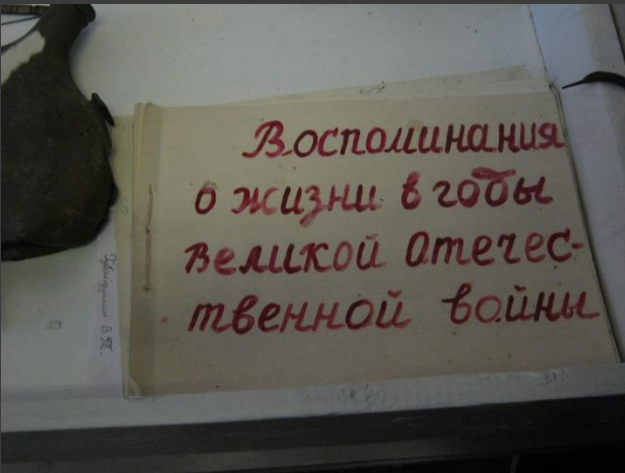 Воспоминания
о жизни в годы
Великой Отечес-
твенной войны
В.Т.